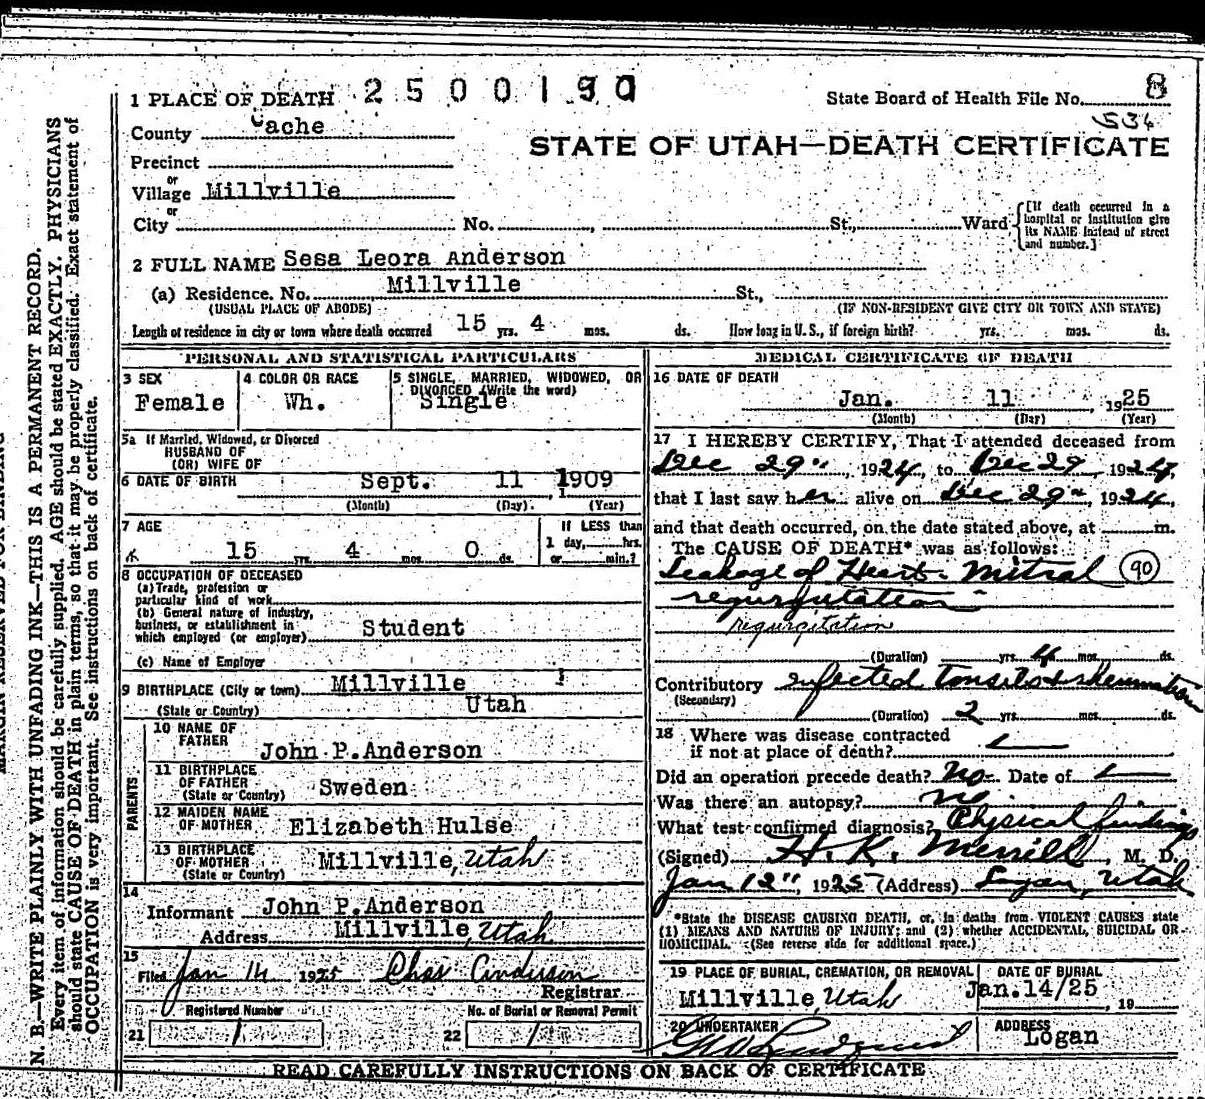 1 PLACE OF DEATH 2500190
State Board of Health File No. 8
534
County Cache
STATE OF UTAH—DEATH CERTIFICATE
Precinct
or
Village Millville
or
City No. , St., Ward
[If death occurred in a
hospital or institution give
its NAME instead of street
and number.]
2 FULL NAME Sesa Leora Anderson
(a) Residence. No. Millville St.,
(USUAL PLACE OF ABODE) (IF NON-RESIDENT GIVE CITY OR TOWN AND STATE)
Length of residence in city or town where death occurred 15 yrs. 4 mos. ds. How long in U. S., if foreign birth? yrs. mos. ds.
PERSONAL AND STATISTICAL PARTICULARS
3 SEX
Female
4 COLOR OR RACE
Wh.
5 SINGLE, MARRIED, WIDOWED, OR
DIVORCED (Write the word)
Single
5a If Married, Widowed, or Divorced
HUSBAND OF
(OR) WIFE OF
6 DATE OF BIRTH Sept. 11 1909
(Month) (Day) (Year)
7 AGE
15 yrs. 4 mos. 0 ds.
If LESS than
1 day, hrs.
or min.?
8 OCCUPATION OF DECEASED
(a) Trade, profession or
particular kind of work
(b) General nature of industry,
business, or establishment in
which employed (or employer) Student
(c) Name of Employer
9 BIRTHPLACE (City or town) Millville
(State or Country) Utah
PARENTS
10 NAME OF
FATHER John P. Anderson
11 BIRTHPLACE
OF FATHER
(State or Country) Sweden
12 MAIDEN NAME
OF MOTHER Elizabeth Hulse
13 BIRTHPLACE
OF MOTHER
(State or Country) Millville, Utah
14
Informant John P. Anderson
Address Millville, Utah
15
Filed Jan 14 1925 Chas Anderson
Registrar
Registered Number
21 1
No. of Burial or Removal Permit
22 1
MEDICAL CERTIFICATE OF DEATH
16 DATE OF DEATH
Jan. 11, 1925
(Month) (Day) (Year)
17 I HEREBY CERTIFY, That I attended deceased from
Dec 29", 1924, to Dec 29 1924,
that I last saw her alive on Dec 29", 1924,
and that death occurred, on the date stated above, at m.
The CAUSE OF DEATH* was as follows:
Leakage of Heart - Mitral 90
regurgitation
regurgitation
(Duration) yrs. 4 mos. ds.
Contributory Infected tonsils & rheumatism
(Secondary)
(Duration) 2 yrs. mos. ds.
18 Where was disease contracted
if not at place of death?
Did an operation precede death? No- Date of
Was there an autopsy? no.
What test confirmed diagnosis? Physical findings
(Signed) H. K. Merrill, M. D.
Jan 12", 1925 (Address) Logan, Utah
*State the DISEASE CAUSING DEATH, or, in deaths from VIOLENT CAUSES state
(1) MEANS AND NATURE OF INJURY; and (2) whether ACCIDENTAL, SUICIDAL OR
HOMICIDAL. (See reverse side for additional space.)
19 PLACE OF BURIAL, CREMATION, OR REMOVAL
Millville, Utah
DATE OF BURIAL
Jan. 14/25, 19
20 UNDERTAKER
ADDRESS
Logan
READ CAREFULLY INSTRUCTIONS ON BACK OF CERTIFICATE
MARGIN RESERVED FOR BINDING
N. B.—WRITE PLAINLY WITH UNFADING INK—THIS IS A PERMANENT RECORD.
Every item of information should be carefully supplied. AGE should be stated EXACTLY. PHYSICIANS
should state CAUSE OF DEATH in plain terms, so that it may be properly classified. Exact statement of
OCCUPATION is very important. See instructions on back of certificate.